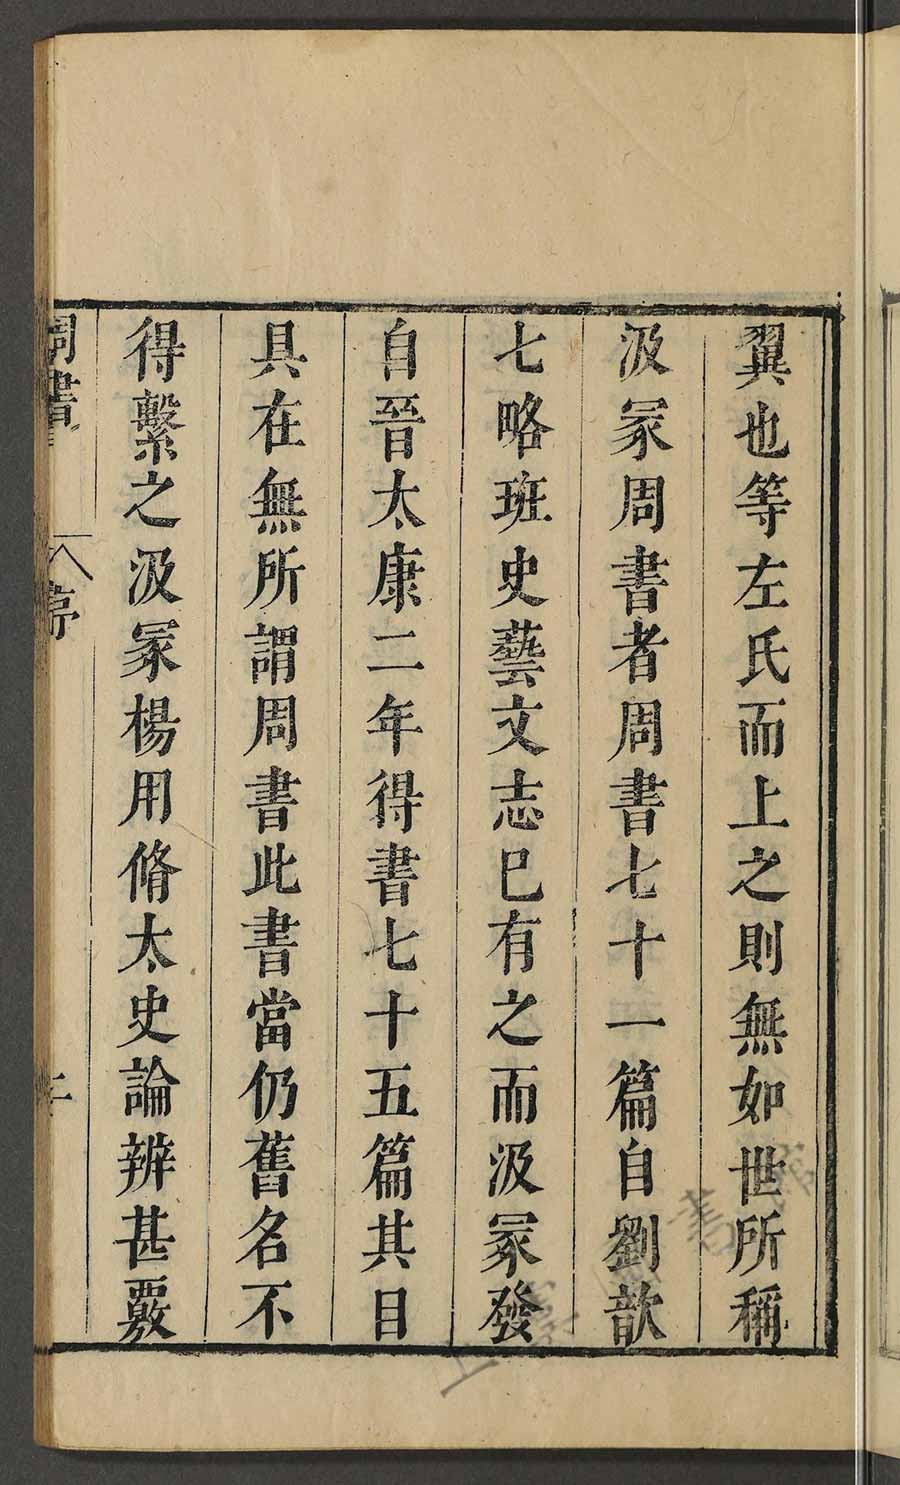 翼也等左氏而上之則無如世所稱
汲冢周書者周書七十一篇自劉歆
七略班史藝文志巳有之而汲冢發
自晉太康二年得書七十五篇其目
具在無所謂周書此書當仍舊名不
得繫之汲冢楊用脩太史論辨甚覈
周書
序